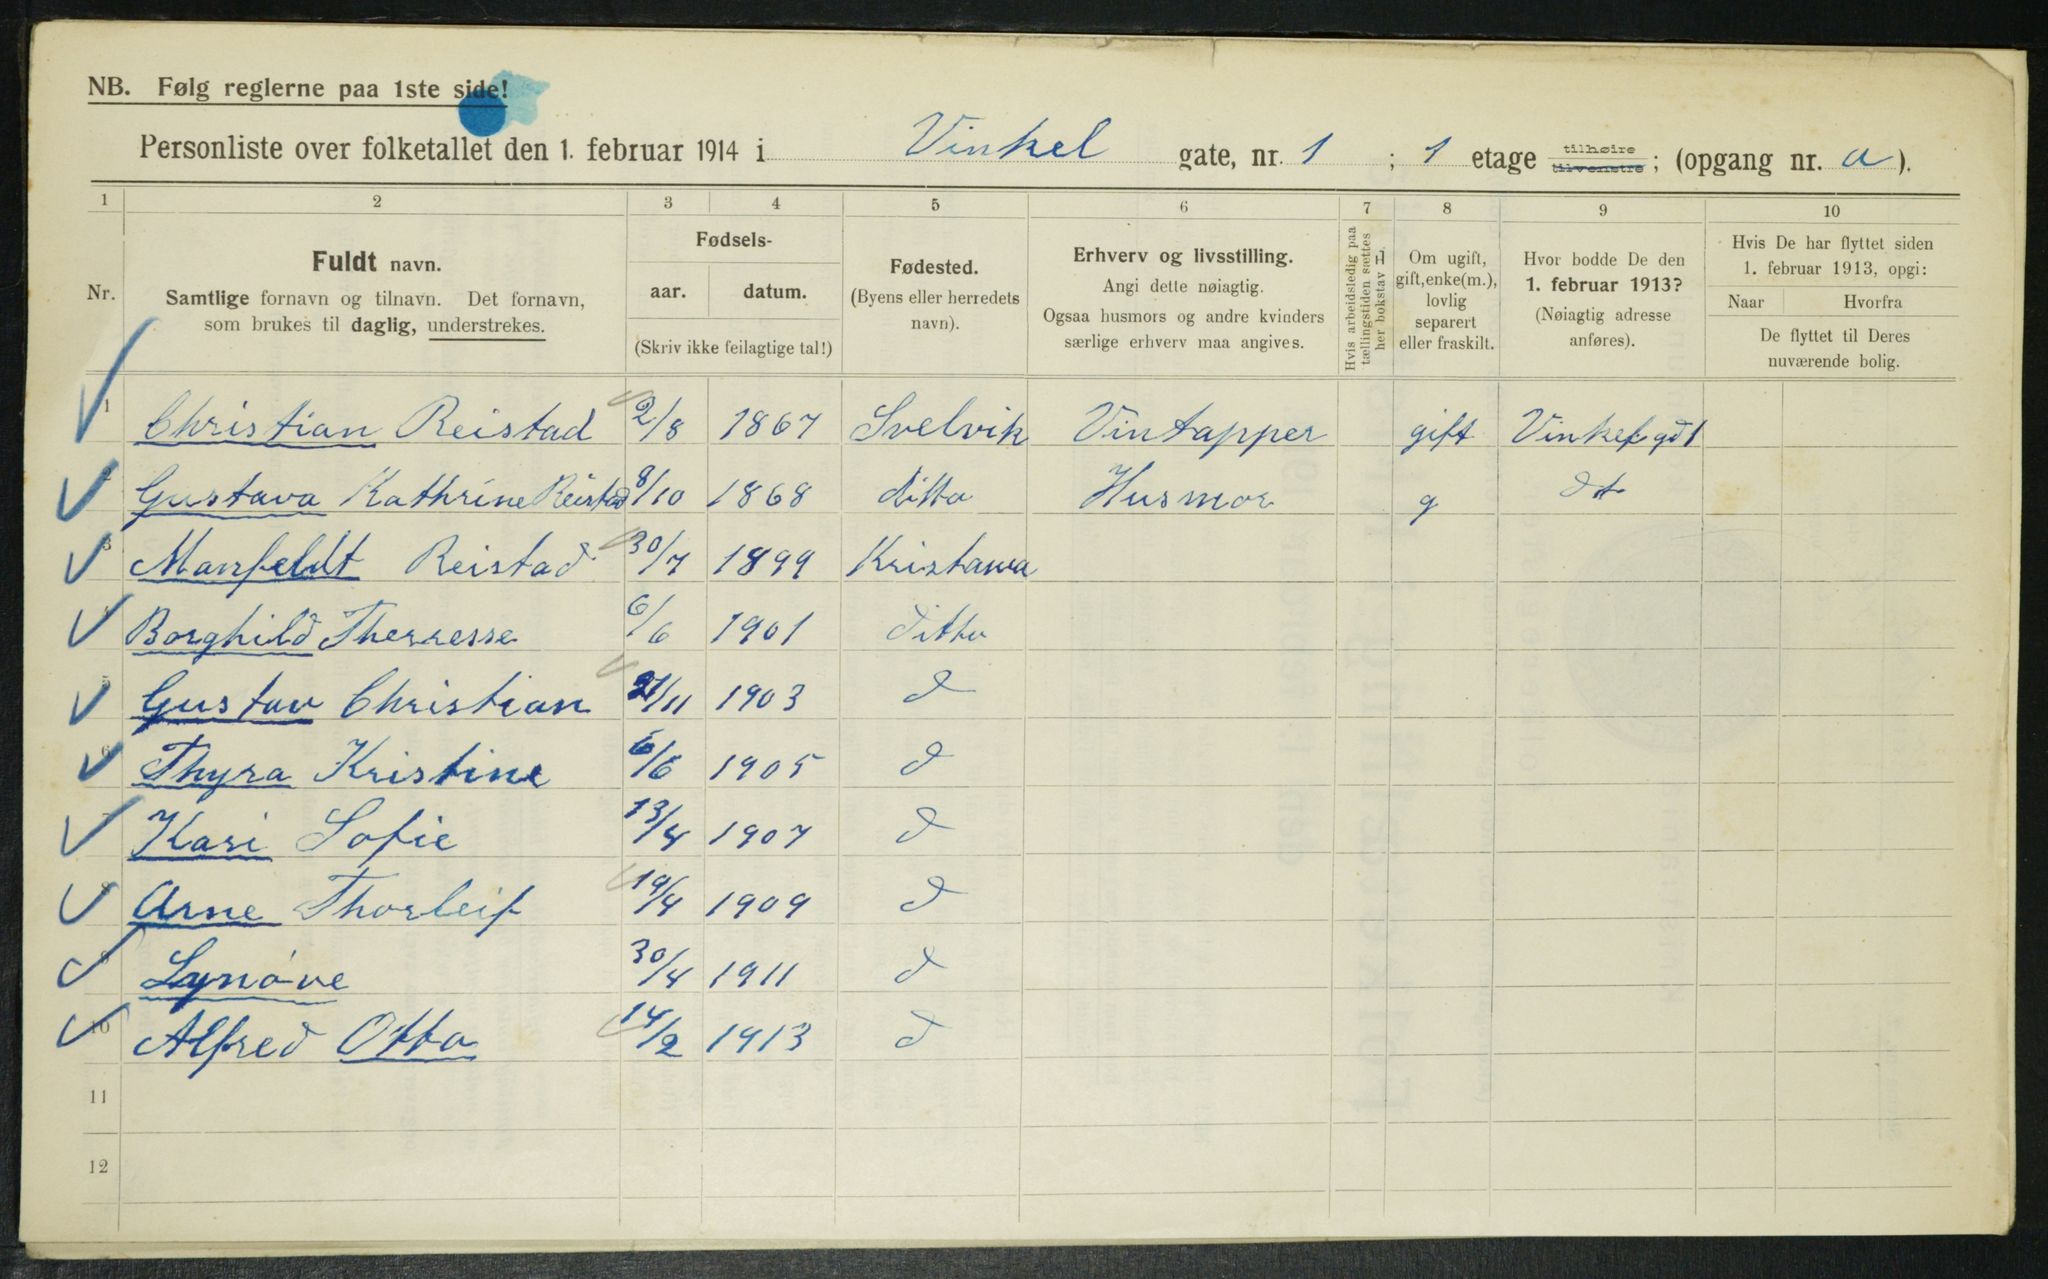 NB. Følg reglerne paa 1ste side!
Personliste over folketallet den 1. februar 1914 i Vinkel gate, nr. 1 ; 1 etage tilhøire tilvenstre ; (opgang nr. a ).
1 2 3 4 5 6 7 8 9 10
Nr.
Fuldt navn.
Samtlige fornavn og tilnavn. Det fornavn,
som brukes til daglig, understrekes.
Fødsels-
aar. datum.
(Skriv ikke feilagtige tal!)
Fødested.
(Byens eller herredets
navn).
Erhverv og livsstilling.
Angi dette nøiagtig.
Ogsaa husmors og andre kvinders
særlige erhverv maa angives.
Hvis arbeidsledig paa
tællingstiden sættes
her bokstav L.
Om ugift,
gift, enke(m.),
lovlig
separert
eller fraskilt.
Hvor bodde De den
1. februar 1913?
(Nøiagtig adresse
anføres).
Hvis De har flyttet siden
1. februar 1913, opgi:
Naar Hvorfra
De flyttet til Deres
nuværende bolig.
1 Christian Reistad 2/8 1867 Svelvik Vintapper gift Vinkelgd 1
2 Gustava Kathrine Reistad 8/10 1868 ditto Husmor g dt
3 Manfeldt Reistad 30/7 1899 Kristania
Borghild Theresse 6/6 1901 ditto
5 Gustav Christian 21/11 1903 d
6 Thyra Kristine 6/6 1905 d
7 Kari Sofie 13/4 1907 d
8 Arne Thorleif 19/4 1909 d
9 Synøve 30/4 1911 d
10 Alfred Otto 14/2 1913 d
11
12